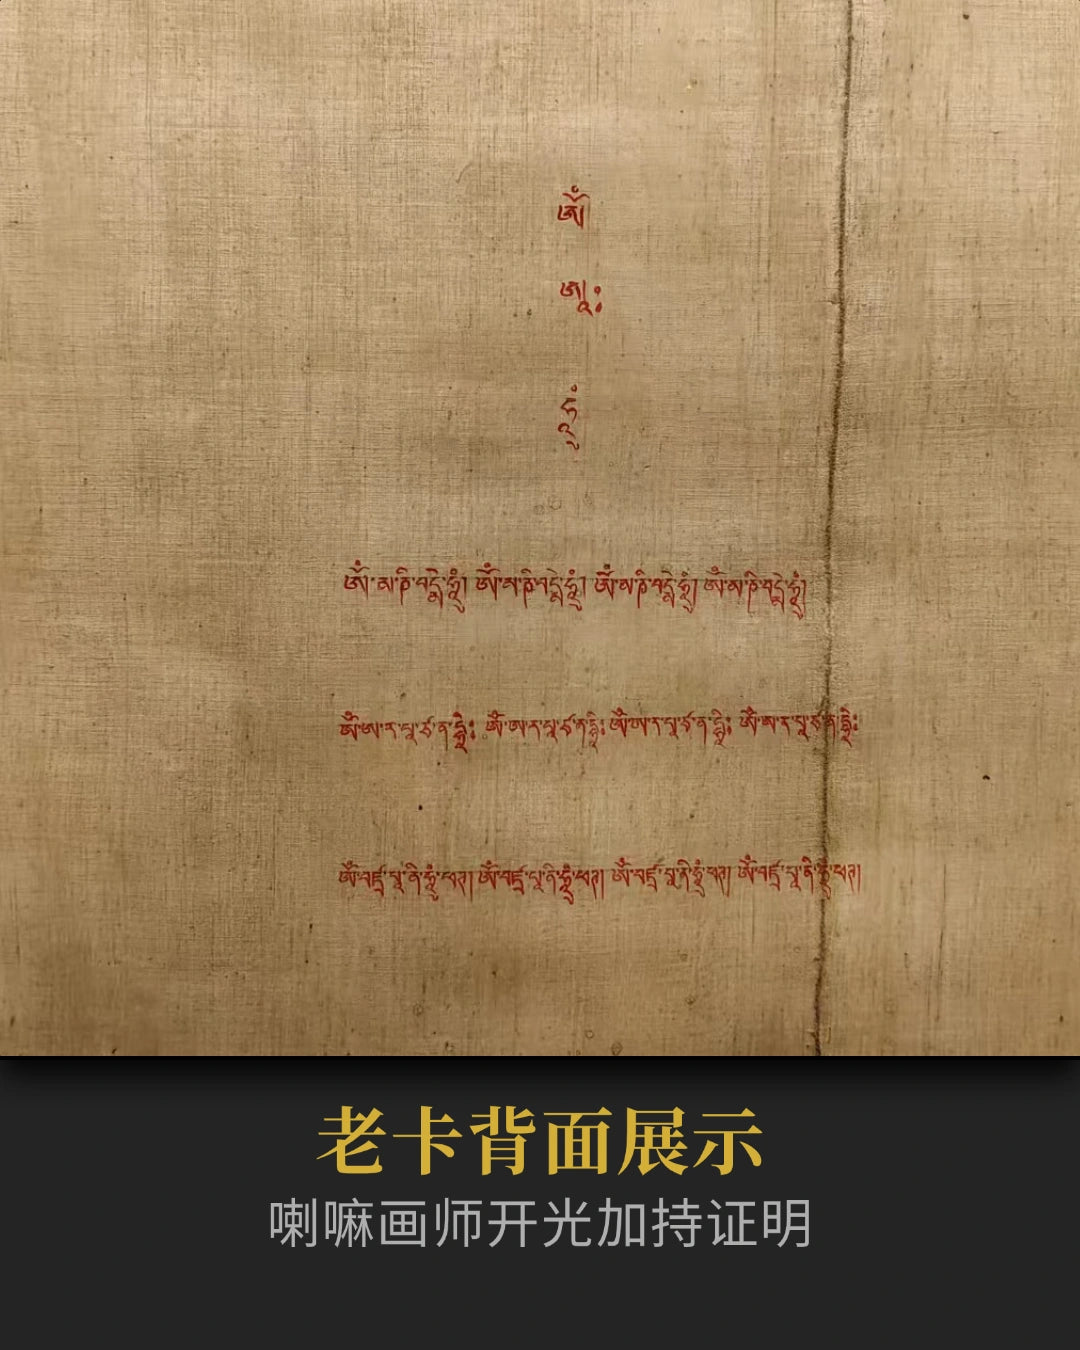 ཨོཾ
ཨཱཿ
ཧཱུྃ
ཨོཾ་མ་ཎི་པདྨེ་ཧཱུྃ། ཨོཾ་མ་ཎི་པདྨེ་ཧཱུྃ། ཨོཾ་མ་ཎི་པདྨེ་ཧཱུྃ། ཨོཾ་མ་ཎི་པདྨེ་ཧཱུྃ།
ཨོཾ་ཨ་ར་པ་ཙ་ན་དྷཱིཿ ཨོཾ་ཨ་ར་པ་ཙ་ན་དྷཱིཿ ཨོཾ་ཨ་ར་པ་ཙ་ན་དྷཱིཿ ཨོཾ་ཨ་ར་པ་ཙ་ན་དྷཱིཿ
ཨོཾ་བཛྲ་པཱ་ཎི་ཧཱུྃ་ཕཊ། ཨོཾ་བཛྲ་པཱ་ཎི་ཧཱུྃ་ཕཊ། ཨོཾ་བཛྲ་པཱ་ཎི་ཧཱུྃ་ཕཊ། ཨོཾ་བཛྲ་པཱ་ཎི་ཧཱུྃ་ཕཊ།
老卡背面展示
喇嘛画师开光加持证明